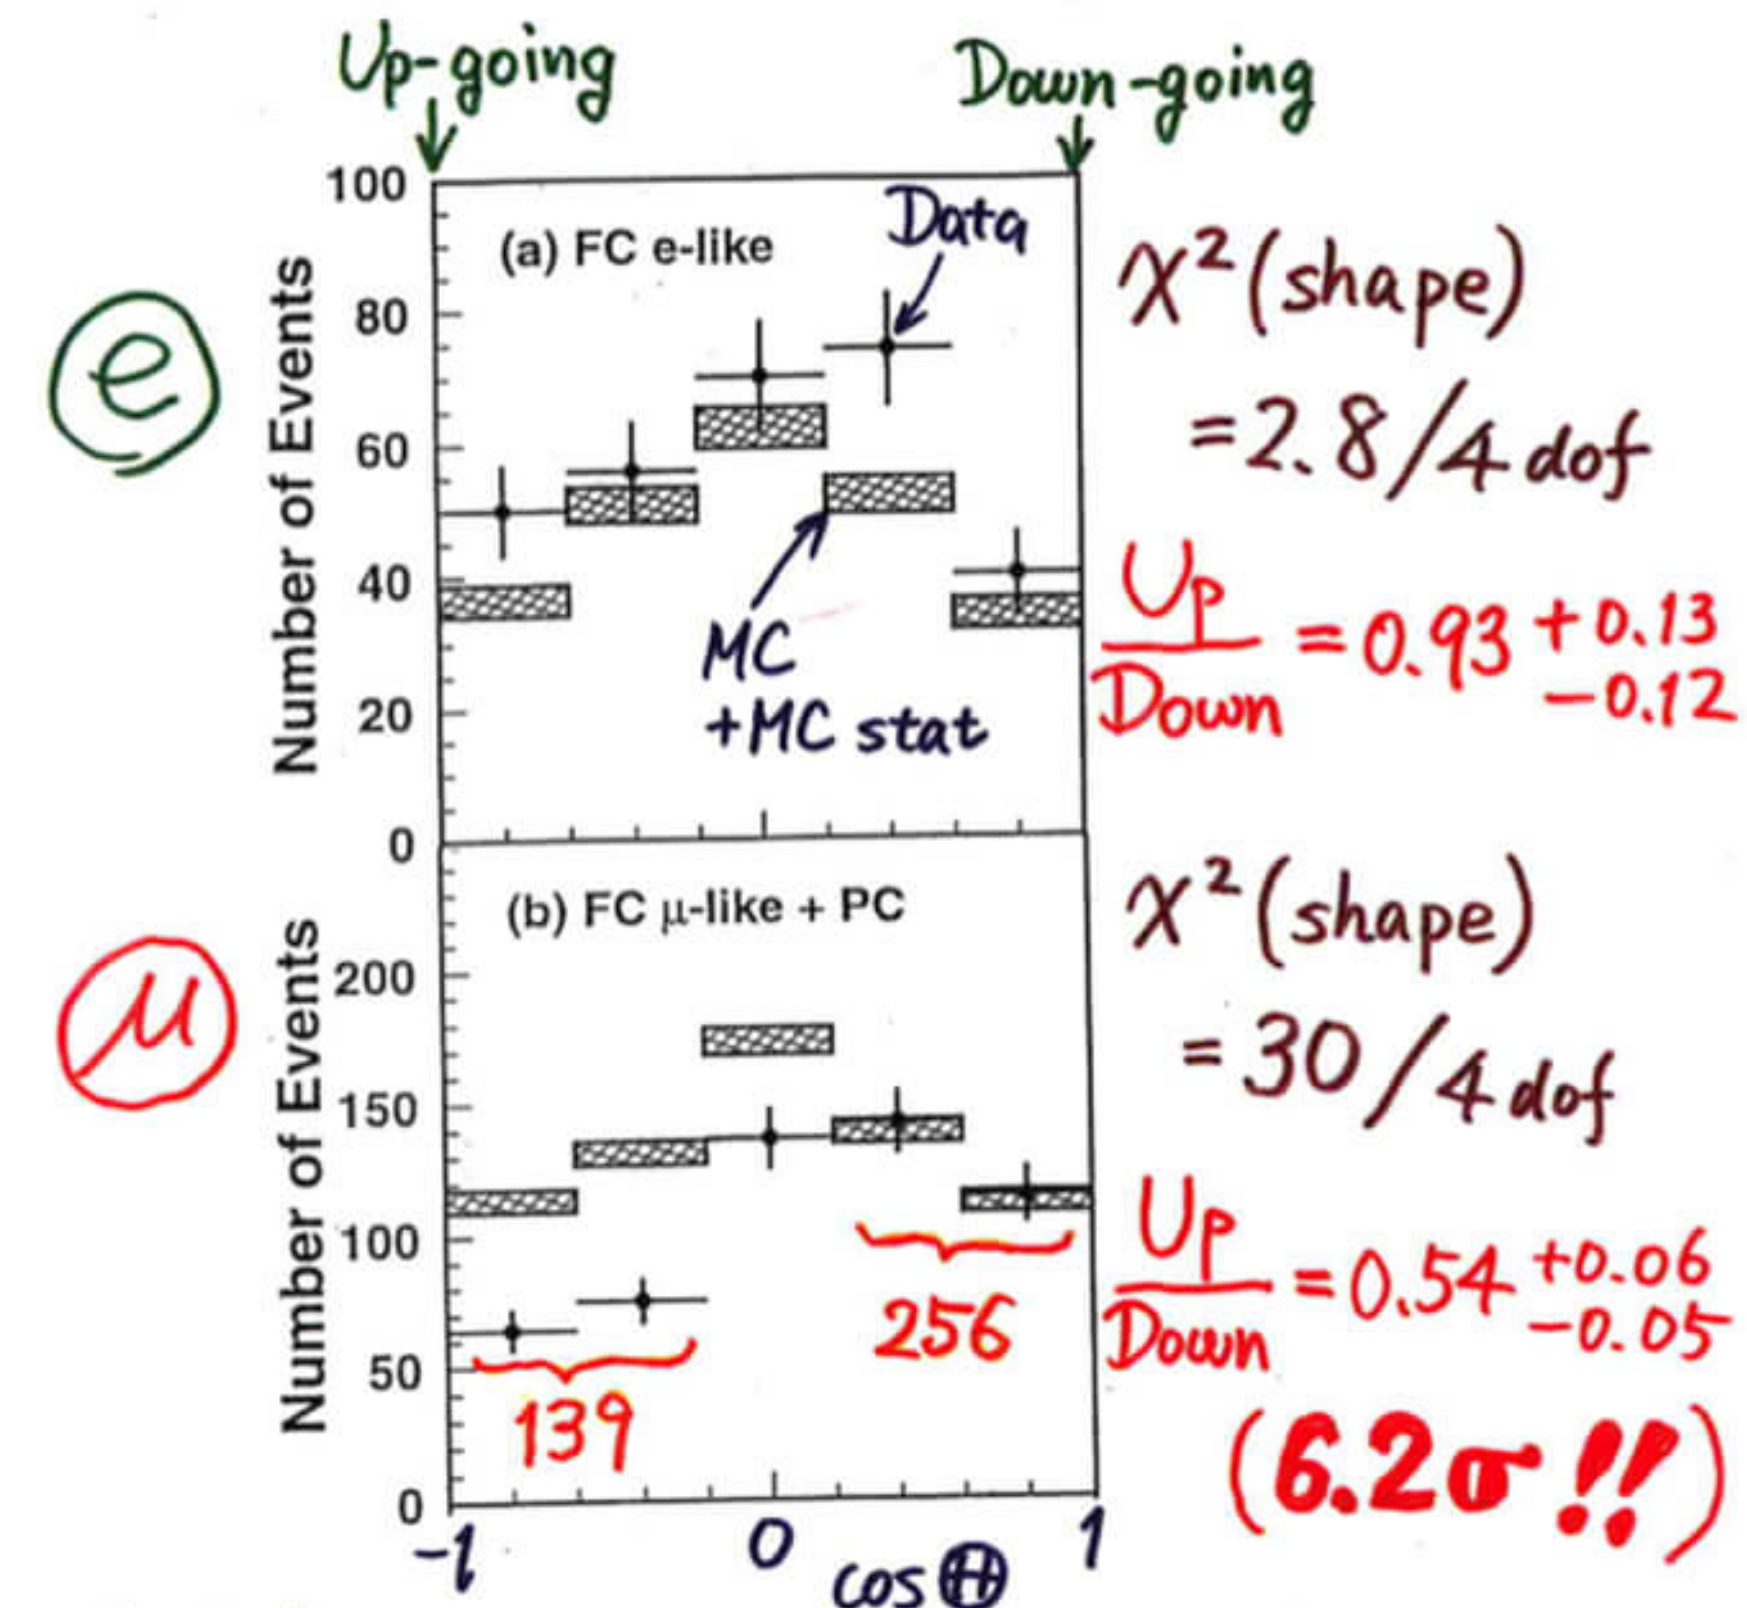 Up-going
Down-going
100
80
60
40
20
0
Number of Events
(a) FC e-like
Data
MC
+MC stat
e
χ² (shape)
= 2.8 / 4 dof
Up
Down
= 0.93 +0.13
-0.12
200
150
100
50
0
Number of Events
(b) FC μ-like + PC
μ
139
256
χ² (shape)
= 30 / 4 dof
Up
Down
= 0.54 +0.06
-0.05
(6.2σ !!)
-1
0
1
cos Θ